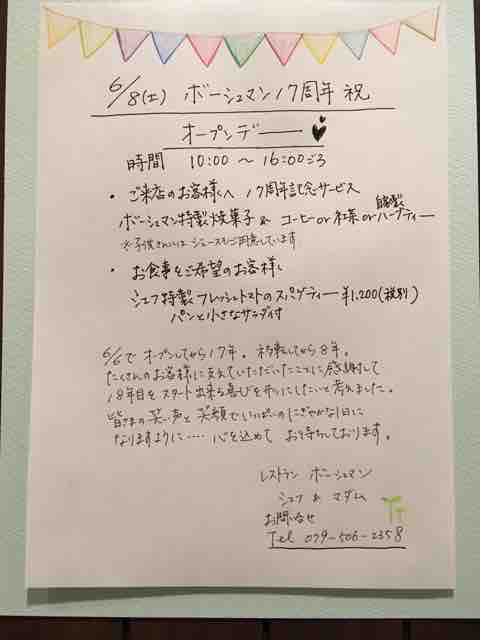 6/8(土) ボーシュマン17周年 祝
オープンデー
時間 10:00 〜 16:00ごろ
・ご来店のお客様へ 17周年記念サービス
自家製
ボーシュマン特製焼菓子 & コーヒー or 紅茶 or ハーブティー
※子供さんにはジュースもご用意しています
・お食事をご希望のお客様に
シェフ特製フレッシュトマトのスパゲティー ¥1,200(税別)
パンと小さなサラダ付
6/6で オープンしてから17年。移転してから8年。
たくさんのお客様に支えていただいたことに感謝して
18年目をスタート出来る喜びを形にしたいと考えました。
皆さまの笑い声と笑顔でいっぱいのにぎやかな1日に
なりますように…… 心を込めて お待ちしております。
レストラン ボーシュマン
シェフ & マダム
お問い合せ
Tel 079-506-2358